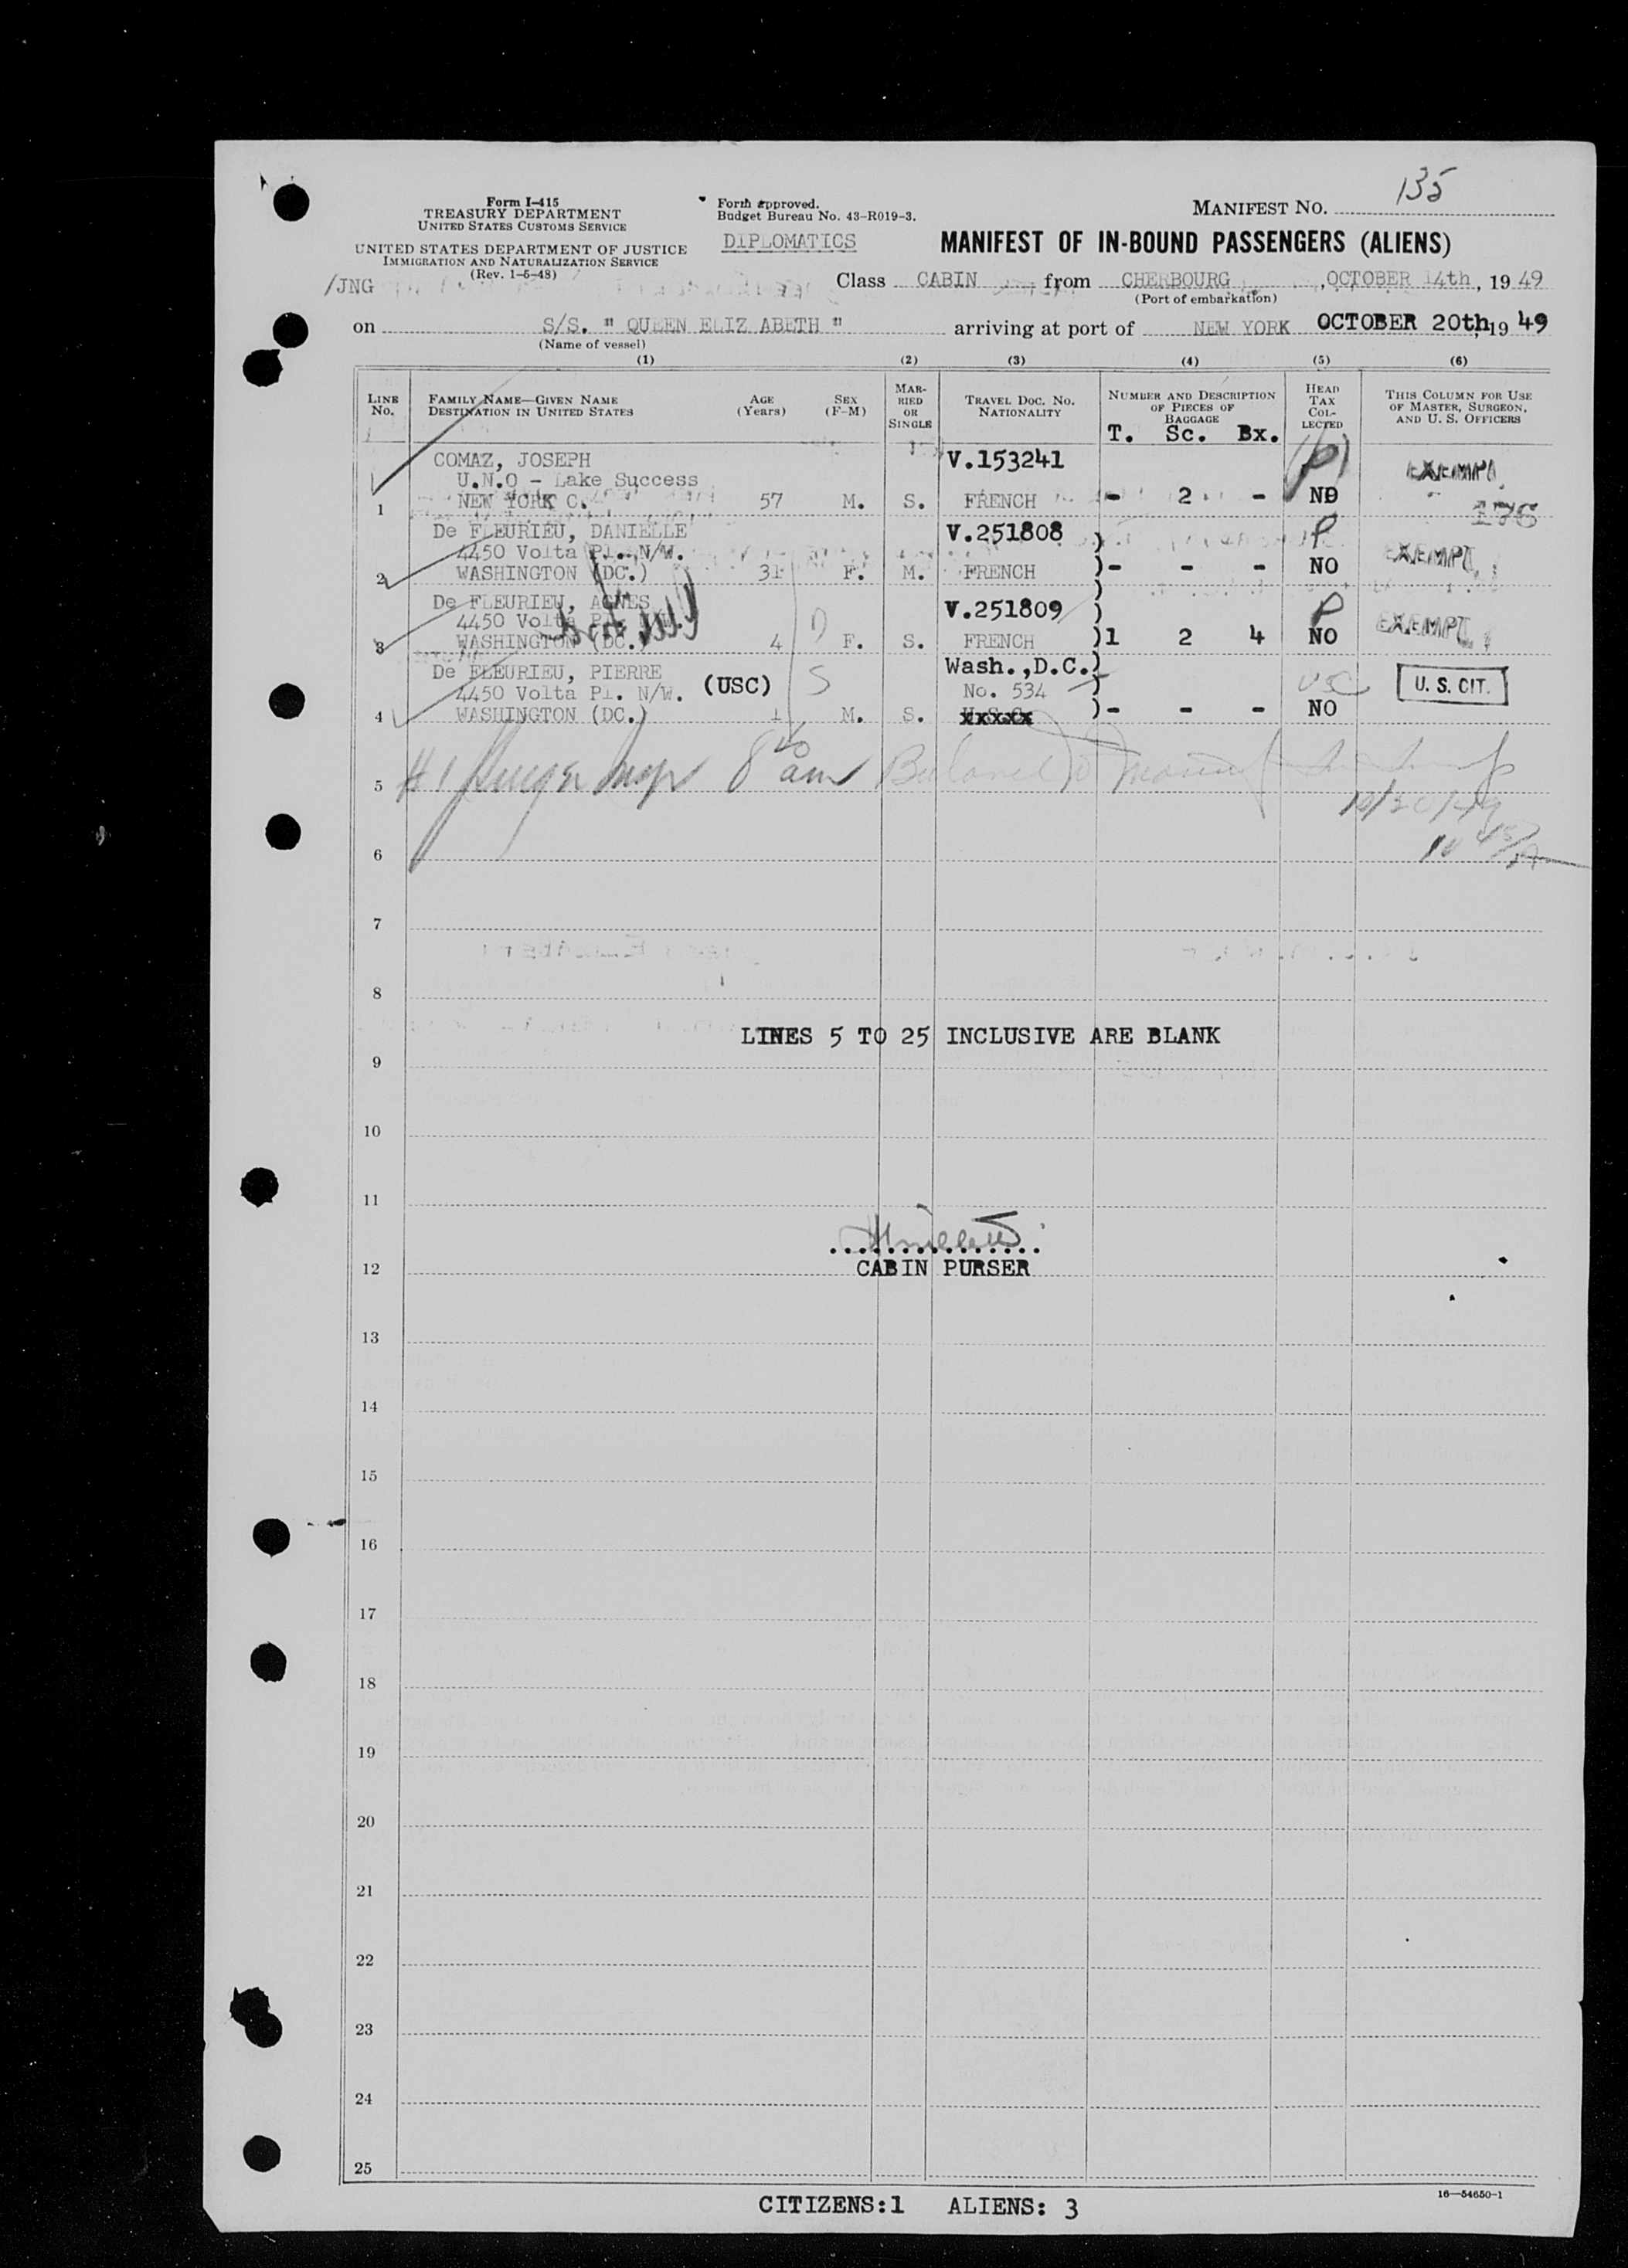 135
Form I-415
TREASURY DEPARTMENT
UNITED STATES CUSTOMS SERVICE
UNITED STATES DEPARTMENT OF JUSTICE
IMMIGRATION AND NATURALIZATION SERVICE
(Rev. 1-5-48)
/JNG
Form approved.
Budget Bureau No. 43-R019-3.
DIPLOMATICS
MANIFEST NO.
MANIFEST OF IN-BOUND PASSENGERS (ALIENS)
Class CABIN from CHERBOURG, OCTOBER 14th, 1949
(Port of embarkation)
on S/S. " QUEEN ELIZ ABETH " arriving at port of NEW YORK OCTOBER 20th, 19 49
(Name of vessel)
(1) (2) (3) (4) (5) (6)
LINE NO.
FAMILY NAME—GIVEN NAME
DESTINATION IN UNITED STATES
AGE (Years)
SEX (F-M)
MARRIED OR SINGLE
TRAVEL DOC. NO. NATIONALITY
NUMBER AND DESCRIPTION OF PIECES OF BAGGAGE
T. Sc. Bx.
HEAD TAX COLLECTED
THIS COLUMN FOR USE OF MASTER, SURGEON, AND U. S. OFFICERS
COMAZ, JOSEPH V.153241 (P) EXEMPT
U.N.O - Lake Success
1 NEW YORK C. 57 M. S. FRENCH - 2 - NO 176
De FLEURIEU, DANIELLE V.251808 ) P
4450 Volta Pl. N/W. EXEMPT
2 WASHINGTON (DC.) 31 F. M. FRENCH )- - - NO
De FLEURIEU, AGNES V.251809 ) P
4450 Volta Pl. EXEMPT
3 WASHINGTON (DC.) 4 F. S. FRENCH )1 2 4 NO
De FLEURIEU, PIERRE Wash.,D.C.)
4450 Volta Pl. N/W. (USC) S No. 534 ) USC U. S. CIT.
4 WASHINGTON (DC.) 1 M. S. xxxxx )- - - NO
#1 8 40 am
5
10/20/49
6
10 45/A
7
8
LINES 5 TO 25 INCLUSIVE ARE BLANK
9
10
11
12 CABIN PURSER
13
14
15
16
17
18
19
20
21
22
23
24
25
16—54650-1
CITIZENS:1 ALIENS: 3